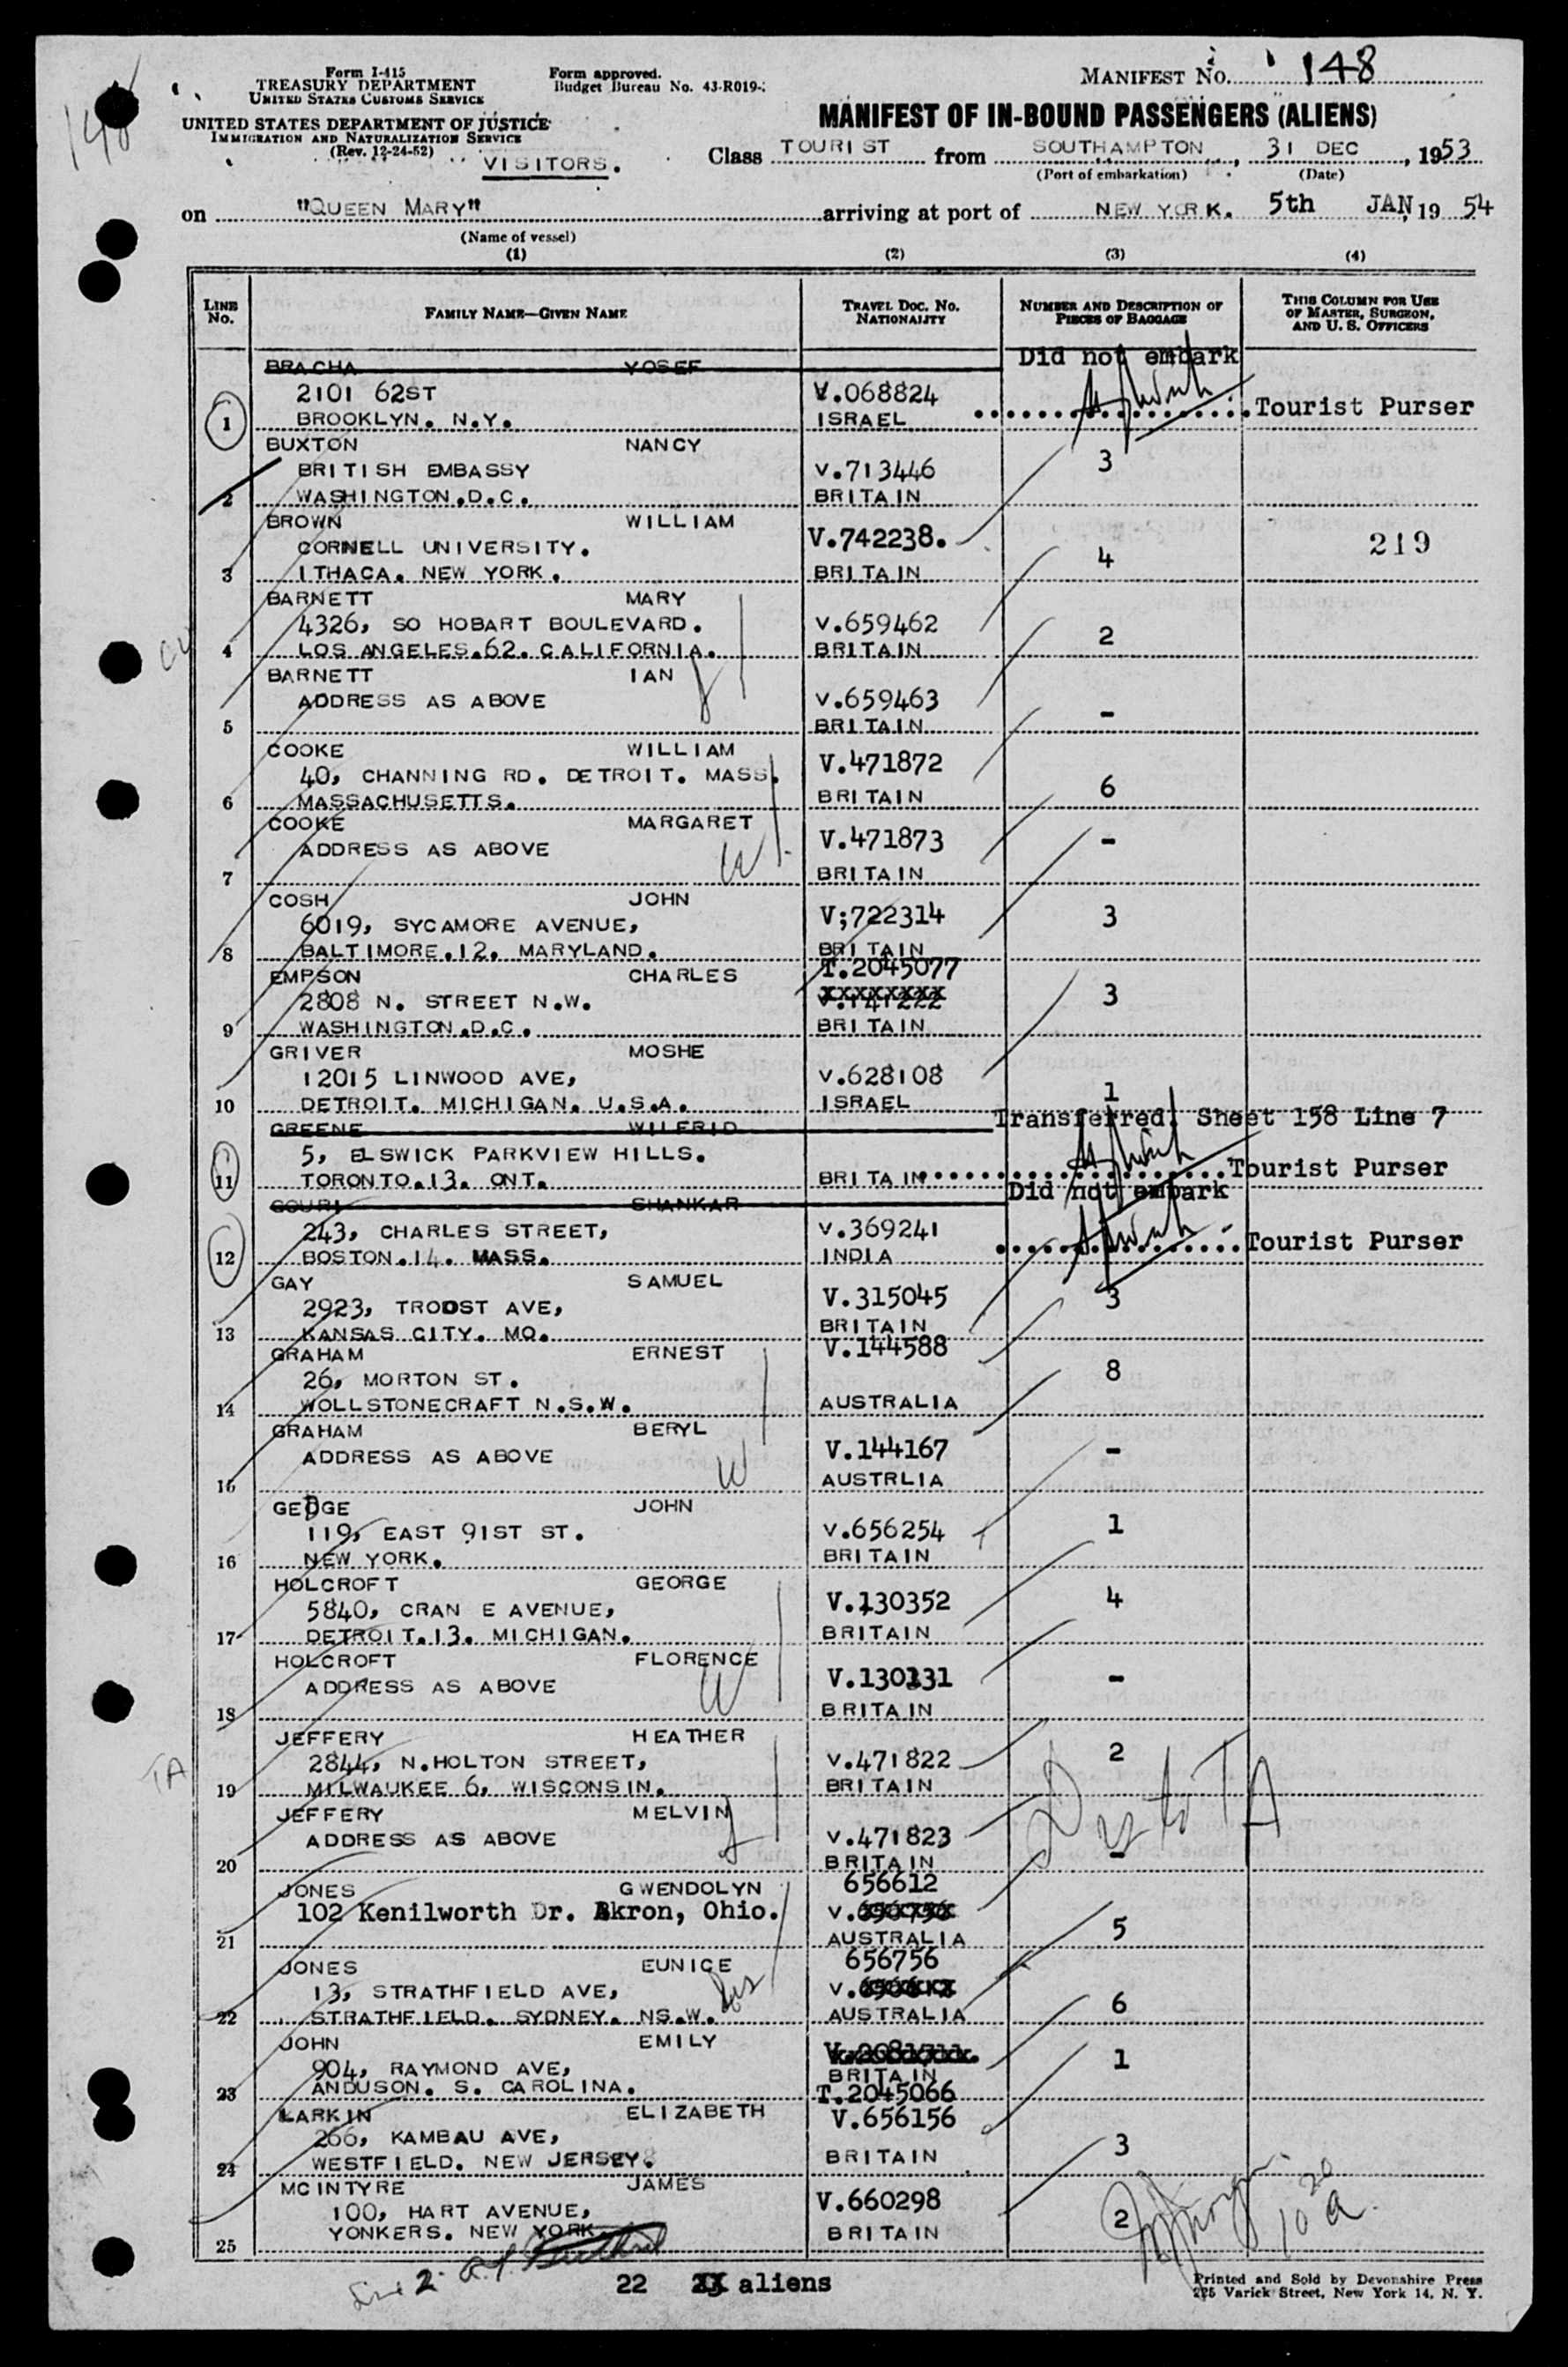 148
Form I-415
TREASURY DEPARTMENT
UNITED STATES CUSTOMS SERVICE
UNITED STATES DEPARTMENT OF JUSTICE
IMMIGRATION AND NATURALIZATION SERVICE
(Rev. 12-24-52)
Form approved.
Budget Bureau No. 43-R019-
MANIFEST NO. 148
MANIFEST OF IN-BOUND PASSENGERS (ALIENS)
VISITORS.
Class TOURIST from SOUTHAMPTON, 31 DEC, 1953
(Port of embarkation) (Date)
on "QUEEN MARY" arriving at port of NEW YORK. 5th JAN, 19 54
(Name of vessel)
(1) (2) (3) (4)
LINE NO. FAMILY NAME—GIVEN NAME TRAVEL DOC. NO. NATIONALITY NUMBER AND DESCRIPTION OF PIECES OF BAGGAGE THIS COLUMN FOR USE OF MASTER, SURGEON, AND U. S. OFFICERS
BRACHA YOSEF Did not embark
2101 62ST V.068824
1 BROOKLYN. N.Y. ISRAEL Tourist Purser
BUXTON NANCY
BRITISH EMBASSY V.713446 3
2 WASHINGTON.D.C. BRITAIN
BROWN WILLIAM
CORNELL UNIVERSITY. V.742238. 219
3 ITHACA. NEW YORK. BRITAIN 4
BARNETT MARY
4326, SO HOBART BOULEVARD. V.659462 2
4 LOS ANGELES.62. CALIFORNIA. BRITAIN
BARNETT IAN
ADDRESS AS ABOVE V.659463 -
5 BRITAIN
COOKE WILLIAM
40, CHANNING RD. DETROIT. MASS. V.471872
6 MASSACHUSETTS. BRITAIN 6
COOKE MARGARET
ADDRESS AS ABOVE V.471873 -
W
7 BRITAIN
COSH JOHN
6019, SYCAMORE AVENUE, V;722314 3
8 BALTIMORE.12. MARYLAND. BRITAIN
EMPSON CHARLES T.2045077
2808 N. STREET N.W. XXXXXXXX 3
9 WASHINGTON.D.C. BRITAIN
GRIVER MOSHE
12015 LINWOOD AVE, V.628108
10 DETROIT. MICHIGAN. U.S.A. ISRAEL 1
GREENE WILFRID Transferred. Sheet 158 Line 7
5, ELSWICK PARKVIEW HILLS.
11 TORONTO.13. ONT. BRITAIN Tourist Purser
GOURI SHANKAR Did not embark
243, CHARLES STREET, V.369241
12 BOSTON.14. MASS. INDIA Tourist Purser
GAY SAMUEL
2923, TROOST AVE, V.315045 3
13 KANSAS CITY. MO. BRITAIN
GRAHAM ERNEST V.144588
26, MORTON ST. 8
14 WOLLSTONECRAFT N.S.W. AUSTRALIA
GRAHAM BERYL
ADDRESS AS ABOVE V.144167 -
W
15 AUSTRLIA
GEDGE JOHN
119, EAST 91ST ST. V.656254 1
16 NEW YORK. BRITAIN
HOLCROFT GEORGE
5840, CRAN E AVENUE, V.130352 4
17 DETROIT.13. MICHIGAN. BRITAIN
HOLCROFT FLORENCE
ADDRESS AS ABOVE V.130131 -
W
18 BRITAIN
JEFFERY HEATHER
2844, N.HOLTON STREET, V.471822 2
TA
19 MILWAUKEE 6, WISCONSIN. BRITAIN
JEFFERY MELVIN
ADDRESS AS ABOVE V.471823 -
20 BRITAIN
JONES GWENDOLYN 656612
102 Kenilworth Dr. Akron, Ohio. V.
21 AUSTRALIA 5
JONES EUNICE 656756
13, STRATHFIELD AVE, V.
22 STRATHFIELD. SYDNEY. NS.W. AUSTRALIA 6
JOHN EMILY
904, RAYMOND AVE, BRITAIN 1
23 ANDUSON. S. CAROLINA. T.2045066
LARKIN ELIZABETH V.656156
266, KAMBAU AVE,
24 WESTFIELD. NEW JERSEY. BRITAIN 3
MCINTYRE JAMES
100, HART AVENUE, V.660298 2
YONKERS. NEW YORK. BRITAIN
25
Line 2
22 aliens
Printed and Sold by Devonshire Press
225 Varick Street, New York 14, N. Y.